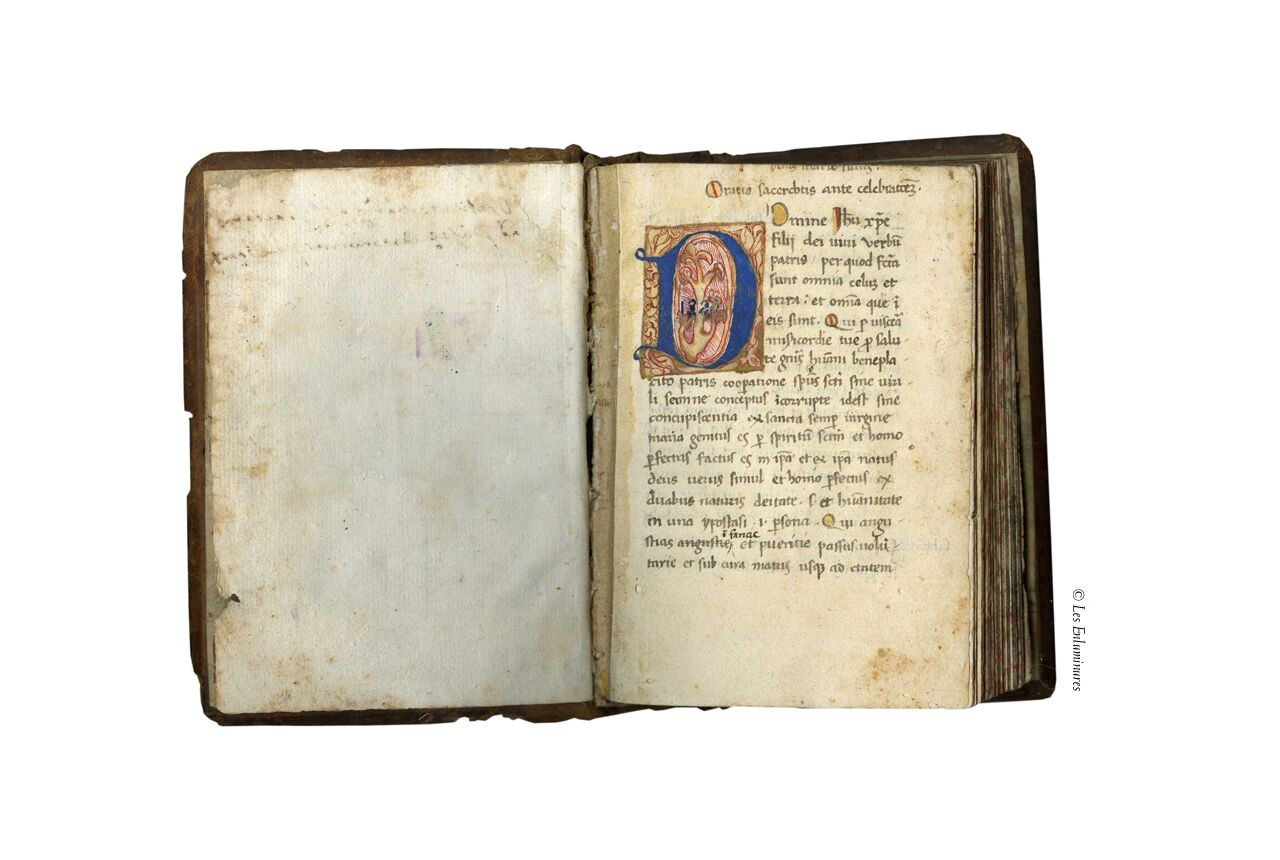 Oratio sacerdotis ante celebratōeȝ.
Domine Jh̄u xp̄e
filij dei uiui verbū
patris per quod fc̄ta
sunt omnia celuȝ et
terra : et om̄ia que ī
eis sunt. Qui p̱ visceā
misericordie tue p̱ salu
te gn̄is hu̅ani benepla
cito patris coop̱atione sp̄us sc̄ti sine uiri-
li semine conceptus īcorrupte idest sine
concupiscentia ex sancta semp̱ uirgine
maria genitus es p̱ spiritū sctm̄ et homo
p̱fectus factus es in ip̄a et ex ip̄a natus
deus uerus simul et homo p̱fectus ex
duabus naturis deitate . s. et hu̅anitate
in una ypostasi .i. p̱sona . Qui angu-
īfanție
stias angustie et pueritie passus volū
tarie et sub cura matris usq̱ ad etatem
1327
© Les Enluminures